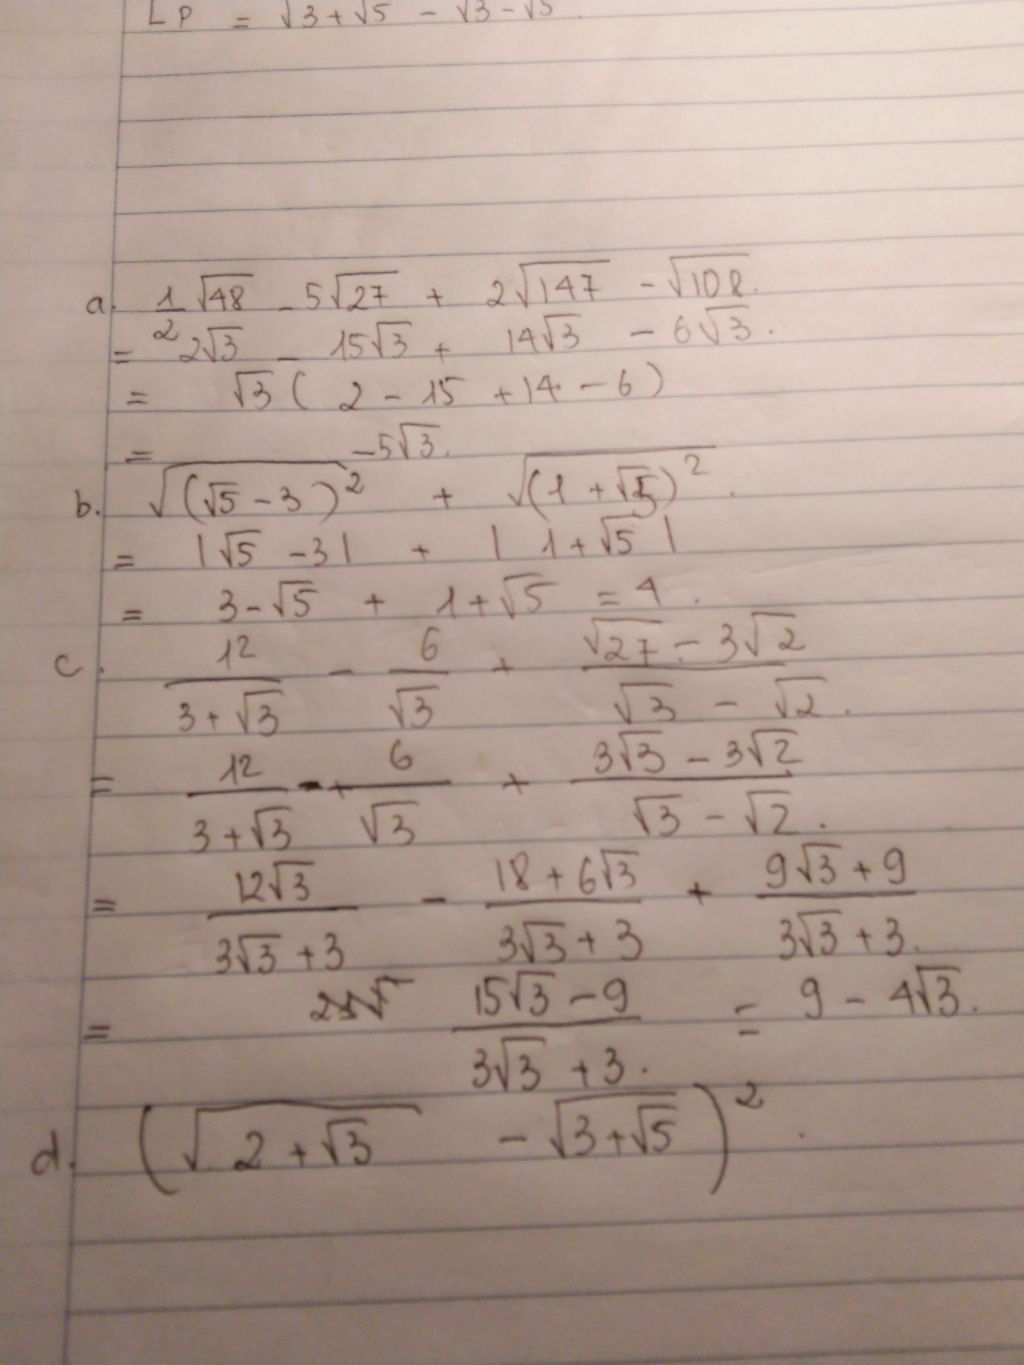 Lp = √3+√5 - √3-√5.
a. 1/2 √48 - 5√27 + 2√147 - √108.
= 2√3 - 15√3 + 14√3 - 6√3.
= √3 ( 2 - 15 + 14 - 6)
= -5√3.
b. √(√5 - 3)² + √(1 + √5)².
= |√5 - 3| + | 1 + √5 |
= 3 - √5 + 1 + √5 = 4.
c. 12/(3+√3) - 6/√3 + (√27 - 3√2)/(√3 - √2).
= 12/(3+√3) - 6/√3 + (3√3 - 3√2)/(√3 - √2).
= 12√3/(3√3+3) - (18+6√3)/(3√3+3) + (9√3+9)/(3√3+3).
= (15√3 - 9)/(3√3+3). = 9 - 4√3.
d. (√2+√3 - √3+√5)².